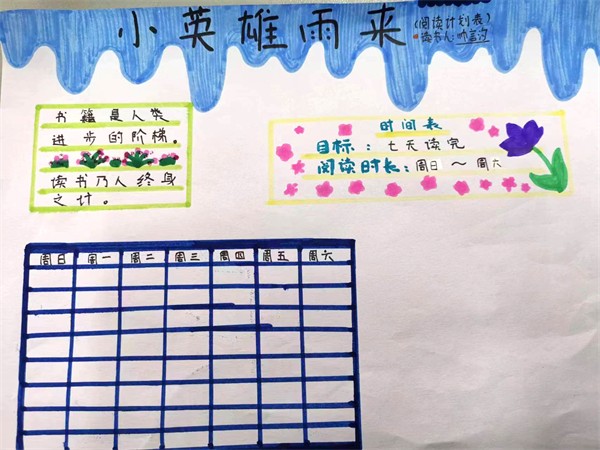 小英雄雨来
(阅读计划表)
读书人:
书籍是人类
进步的阶梯。
读书乃人终身
之计。
时间表
目标：七天读完
阅读时长：周日～周六
周日 周一 周二 周三 周四 周五 周六